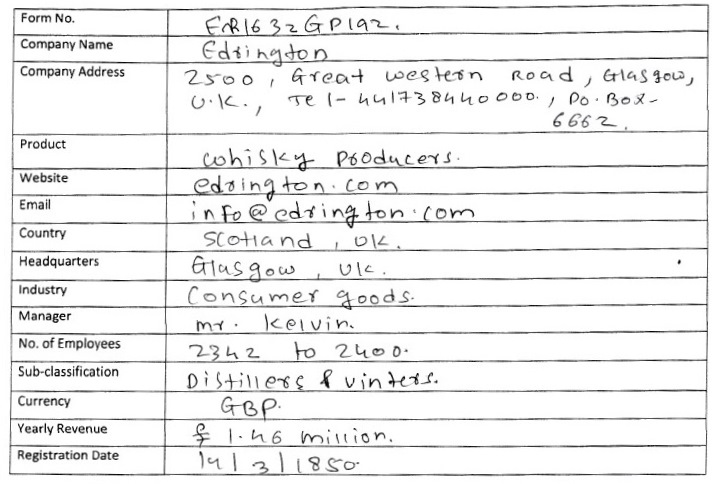 Form No. ER1632GP192.
Company Name Edrington
Company Address 2500, Great western Road, Glasgow,
U.K., Tel-441738440000., Po. Box-
6662.
Product whisky Producers.
Website edrington.com
Email info@edrington.com
Country Scotland, UK.
Headquarters Glasgow, UK.
Industry Consumer goods.
Manager mr. Kelvin.
No. of Employees 2342 to 2400.
Sub-classification Distillers & vinters.
Currency GBP.
Yearly Revenue £ 1.46 million.
Registration Date 14/3/1850.